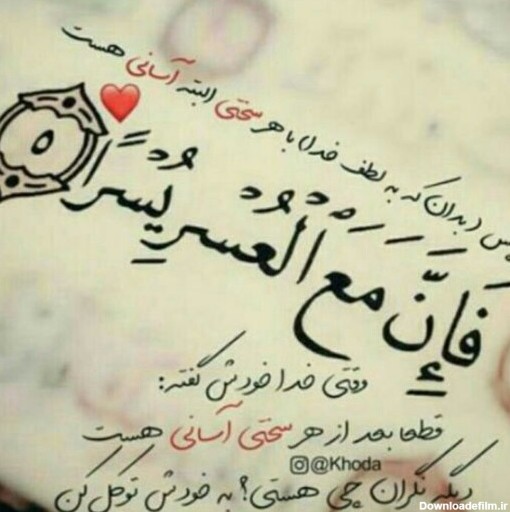 پس بدان که به لطف خدا با هر سختی البته آسانی هست
فَإِنَّ مَعَ الْعُسْرِ يُسْرًا ٥
وقتی خدا خودش گفته:
قطعا بعد از هر سختی آسانی هست
@Khoda
دیگه نگران چی هستی؟ به خودش توکل کن
Downloadefilm.ir